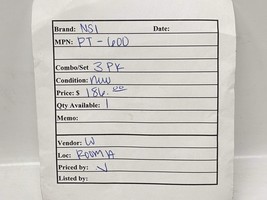 Brand: NSI Date:
MPN: PT-600
Combo/Set 3 PK
Condition: NEW
Price: $ 186.00
Qty Available: 1
Memo:
Vendor: W
Loc: ROOM A
Priced by: V
Listed by: